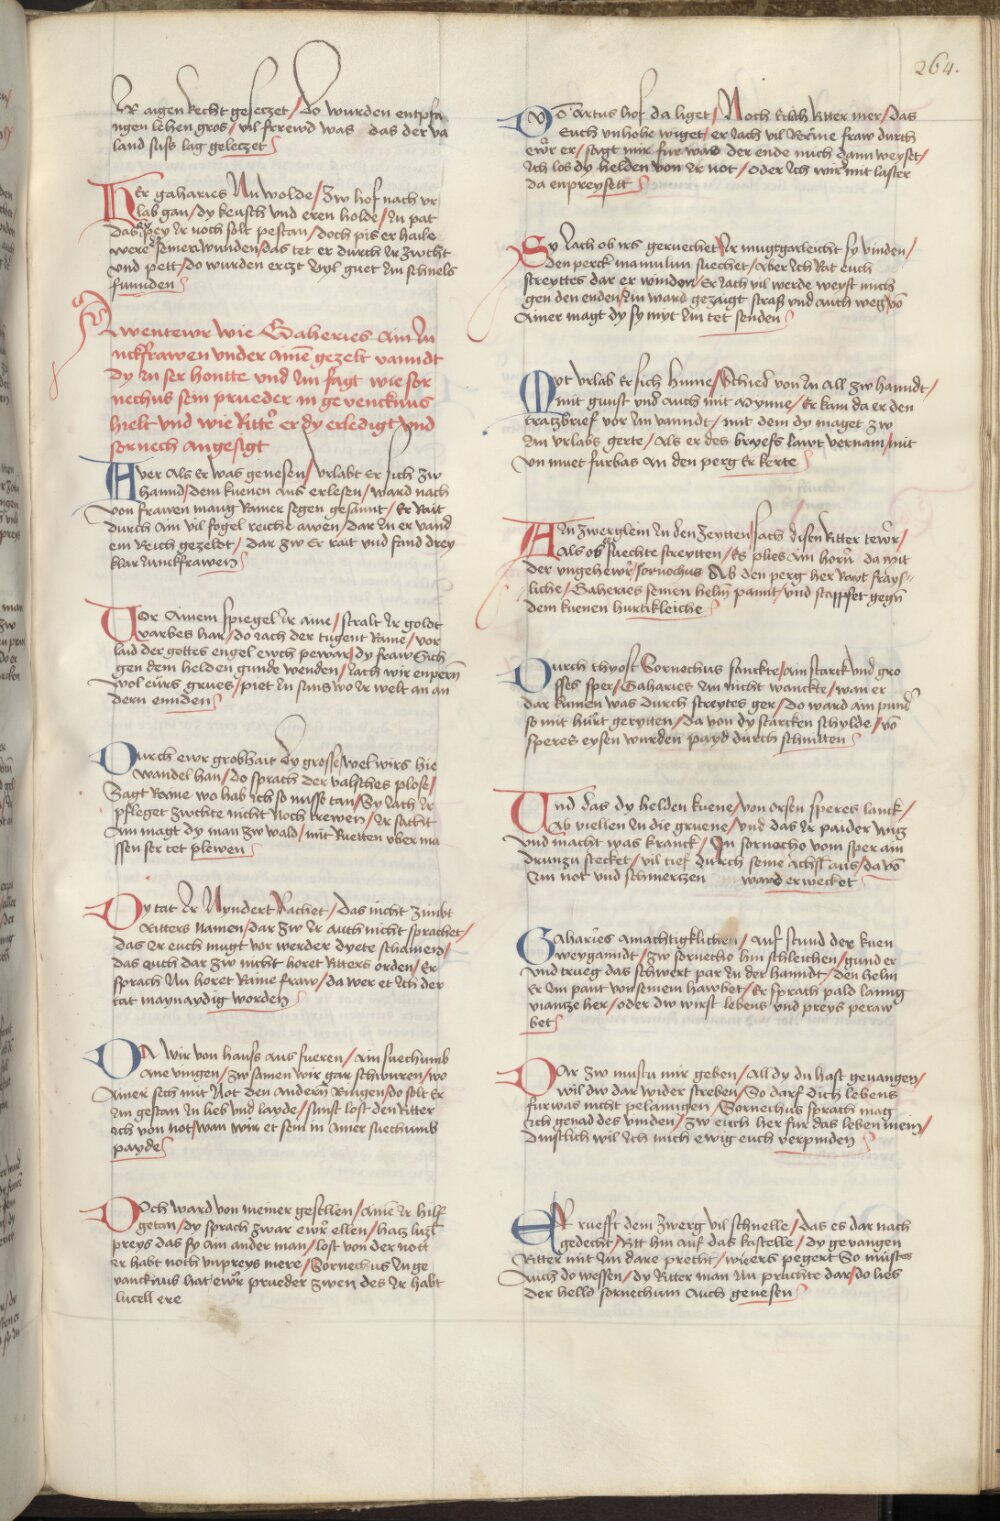 264.
Er aigen Recht geseczet / Do wurden entpfa
ngen lehen gros / vil frewd was das der va
land suss lag geleczet
Er gaharies Nu wolde / Zw hof nach vr
lab gan / dy keusch vnd eren holde / In pat
das pey Ir noch solt pestan / doch pis er haile
were seiner wunden / das tet er durch Ir zwcht
vnd pett / do wurden erczt vyl guet Im schnels
funnden
Awentewr wie Gaheries ain Iu
nckfrawen vnder ainē gezelt vanndt
dy In ser hontte vnd Im sagt wie sor
nechus sein prueder in gevencknus
hielt vnd wie Ritter er dy erledigt vnd
sornech angesigt
Aver als er was genesen / vrlabt er sich zw
hannd / dem kuenen aus erlesen / ward nach
von frawen mang Rainer segen gesannt / Er Rait
durch ain vil fogel reiche awen / dar In er vand
ein Reich gezeldt / dar zw Er rait vnd fand drey
klar Iunckfrawen
Vor ainem spiegel Ir aine / stralt Ir goldt
varbes har / do Iach der tugent Raine / vor
laid der gottes engel ewch pewar / dy fraw Sich
gen dem helden gunde wenden / Iach wir enpern
wol ewrs grues / piet In suns wo Ir welt an an
dern ennden
Durch ewr grobhait dy grosse wel wirs hie
wandel han / do sprach der valsches plose /
Sagt Raine wo hab ich so misse tan / Sy Iach Ir
pfleget zwchte nicht Noch trewen / Ir sacht
ain magt dy man zw wald / mit Ruetten vber ma
ssen ser tet plewen
Dy tat Ir Nyndert Rachet / das nicht zimbt
Ritters namen / dar zw Ir auch nicht sprachet /
das Ir euch mugt vor werder dyete schamen /
das auch dar zw nicht horet Ritters orden / Er
sprach Nu horet Raine fraw / da wer et Ich der
tat maynaydig worden
Da wir von hauss aus fueren / ain suechumb
Ane vingen / zw samen wir gar schwuren / wo
Ainer sech mit Not den andern Ringen / do solt Er
Im gestan In lieb vnd layde / sunst lost den Ritter
Ich von not / wan wir et sein in ainer suechumb
payde
Doch ward von meiner gesellen / ainē Ir hilf
getan / dy sprach zwar ewr ellen / hatz luzl
preys das sy ain ander man / lost von der nott
Ir habt noch vnpreys mere / Sornechus In ge
vancknus hat ewr prueder zwen des Ir habt
lucell ere
Vō Artus hof da liget / Noch edlich Ritter mer / das
Euch vnhohe wiget / er Iach vil Raine fraw durch
ewr er / sagt mir fur war der ende mich dann weyset /
Ich los dy helden von Ir not / oder Ich wirt mit laster
da enpreysett
Sy Iach ob irs geruechet / Ir mugt gar leicht sy vinden /
den perck mamulin suechet / Aber Ich Rat euch
streyttes dar er winden / Er Iach vil werde weyst mich
gen den enden / Im ward gezaigt strass vnd auch weg vō
Ainer magt dy sy myt Im tet senden
Myt vrlab Er sich hinne / Schied von In all zw hanndt /
mit gunst vnd auch mit Mynne / Er kam da er den
tratzbrief vor Im vanndt / mit dem dy maget zw
Im vrlabs gerte / Als er des bryefs lawt vernam / mit
vn muet furbas an den perg Er kerte
Ain zwerglein In den Zeytten / sach disen Ritter tewr /
Als ob er suechte streytten / Es plies ain horn da mit
der vngehewr / sornochus Ab den perg her Rayt frays=
liche / Gaheries seinen helm pannt / vnd stapfet gegn̄
dem kuenen hurtikleiche
Durch thyost Sornechus sanckte / ain starck vnd gro
sses sper / Gaharies Im nicht wanckte / wan er
dar kumen was durch streytes ger / Do ward ain pund̄
so mit hurt gerytten / da von dy starcken schylde / vō
speres eysen wurden payd durch schnitten
Vnd das dy helden kuene / von orsen speres lanck /
Ab viellen In die gruene / vnd das Ir paider wig
vnd macht was kranck / In sornocho vom sper ain
drunzn stecket / vil tief durch seine achsl aus / da vō
Im not vnd schmerczen ward erwecket
Gaharies amachtigklichen / auf stund der kuen
weyganndt / zw sornecho hin schleichen / gund er
vnd trueg das schwert par In der hanndt / den helm
Er Im pant von seinem hawbet / Er sprach pald lannig
viantze her / oder dw wirst lebens vnd preys peraw
bet
Dar zw mustu mir geben / All dy du hast gevangen /
wil dw dar wider streben / So darf dich lebens
furwas nicht pelanngen / Sornechus sprach mag
Ich genad des vinden / zw euch her fur das leben mein /
dinstlich wil Ich mich ewig euch verpinden
Er ruefft dem zwerg vil schnelle / das es dar nach
gedecht / Ritt hin auf das kastelle / dy gevangen
Ritter mit Im dare precht / wiers pegert So muest es
Auch do wessen / dy Ritter man Im prachte dar / do lies
der helld sornechum auch genesen